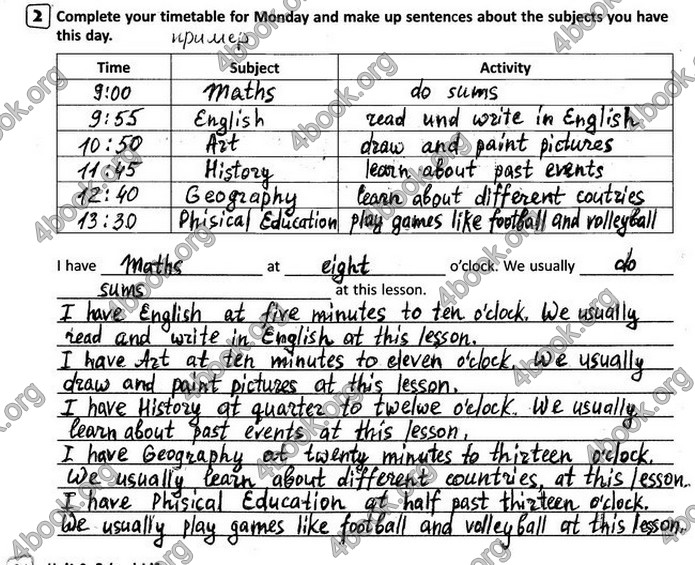 2 Complete your timetable for Monday and make up sentences about the subjects you have
this day. пример
Time Subject Activity
9:00 Maths do sums
9:55 English read und write in English
10:50 Art draw and paint pictures
11:45 History learn about past events
12:40 Geography learn about different coutries
13:30 Phisical Education play games like football and volleyball
I have Maths at eight o'clock. We usually do
sums at this lesson.
I have English at five minutes to ten o'clock. We usually
read and write in English at this lesson.
I have Art at ten minutes to eleven o'clock. We usually
draw and paint pictures at this lesson.
I have History at quarter to twelwe o'clock. We usually
learn about past events at this lesson.
I have Geography at twenty minutes to thirteen o'clock.
We usually learn about different countries, at this lesson.
I have Phisical Education at half past thirteen o'clock.
We usually play games like football and volleyball at this lesson.
4book.org